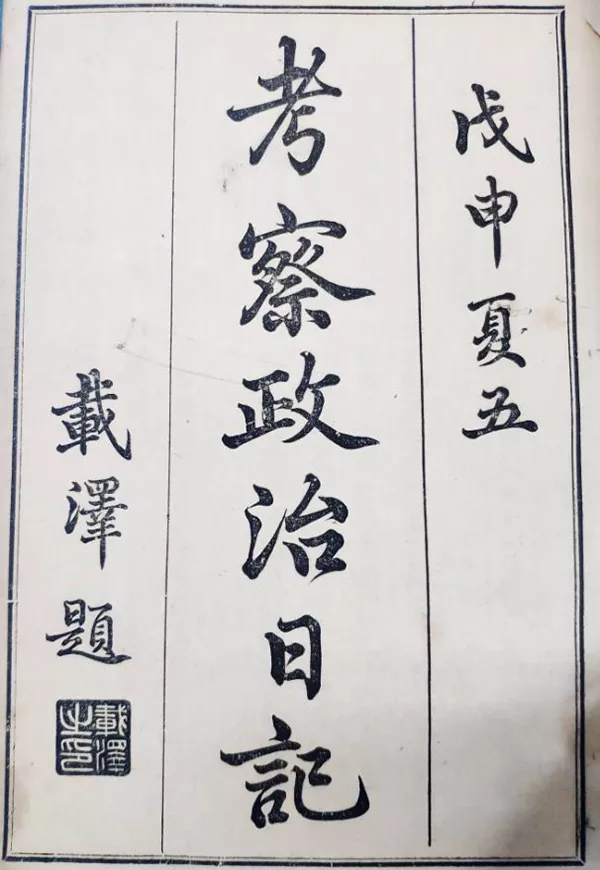 戊申夏五
考察政治日記
載澤題
載澤之印